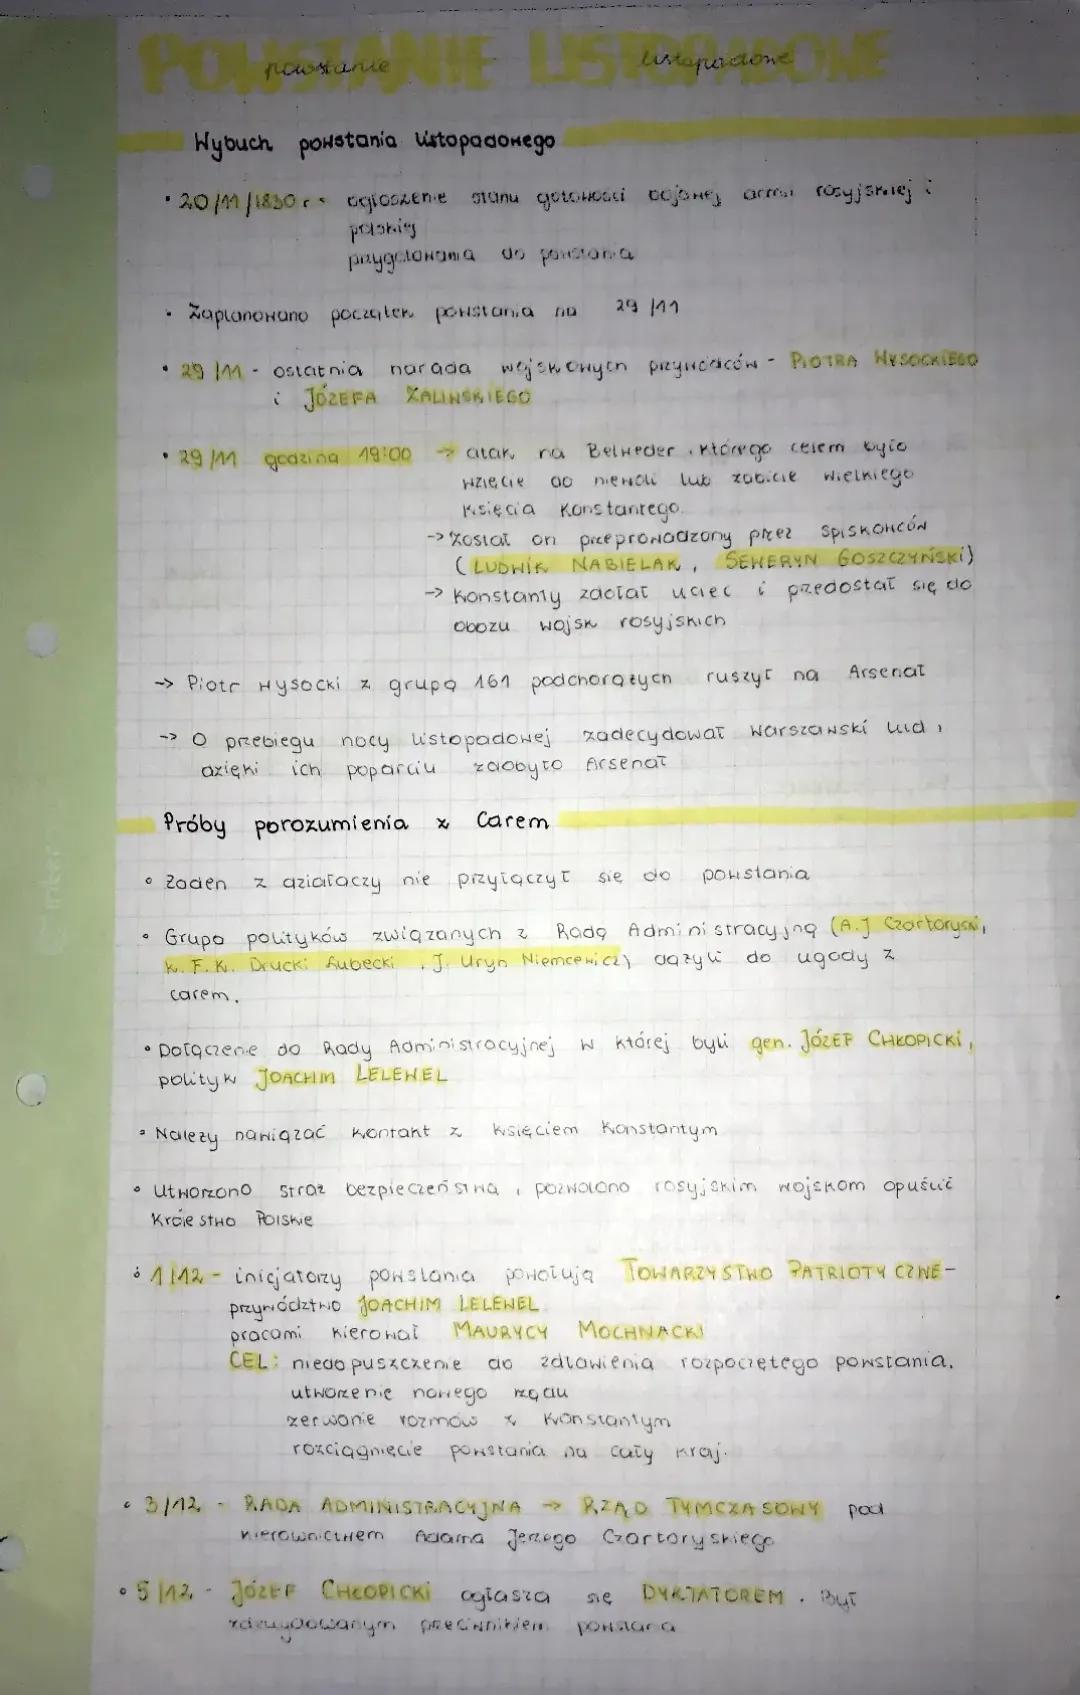 POWSTANIE LISTOPADOWE
powstanie listopadowe
Wybuch powstania listopadowego
• 20/11/1830 r - ogłoszenie stanu gotowości bojowej armii rosyjskiej i
polskiej
przygotowania do powstania
• Zaplanowano początek powstania na 29/11
• 29/11 - ostatnia narada wojskowych przywódców - PIOTRA WYSOCKIEGO
i JÓZEFA ZALIWSKIEGO
• 29/11 godzina 19:00 → atak na Belweder, którego celem było
wzięcie do niewoli lub zabicie wielkiego
księcia Konstantego.
→ Został on przeprowadzony przez spiskowców
(LUDWIK NABIELAK, SEWERYN GOSZCZYŃSKI)
→ Konstanty zdołał uciec i przedostał się do
obozu wojsk rosyjskich
→ Piotr Wysocki z grupą 161 podchorążych ruszył na Arsenał
→ O przebiegu nocy listopadowej zadecydował warszawski lud,
dzięki ich poparciu zdobyto Arsenał
Próby porozumienia z carem
• Żaden z działaczy nie przyłączył się do powstania
• Grupa polityków związanych z Radą Administracyjną (A.J Czartoryski,
K. F. K. Drucki Lubecki, J. Uryn Niemcewicz) dążyli do ugody z
carem.
• Dołączenie do Rady Administracyjnej w której byli gen. JÓZEF CHŁOPICKI,
polityk JOACHIM LELEWEL
• Należy nawiązać kontakt z księciem Konstantym
• Utworzono straż bezpieczeństwa, pozwolono rosyjskim wojskom opuścić
Królestwo Polskie
• 1/12 - inicjatorzy powstania powołują TOWARZYSTWO PATRIOTYCZNE -
przywództwo JOACHIM LELEWEL
pracami kierował MAURYCY MOCHNACKI
CEL: niedopuszczenie do zdławienia rozpoczętego powstania.
utworzenie nowego rządu
zerwanie rozmów z Konstantym
rozciągnięcie powstania na cały kraj.
• 3/12 - RADA ADMINISTRACYJNA → RZĄD TYMCZASOWY pod
kierownictwem Adama Jerzego Czartoryskiego
• 5/12 - JÓZEF CHŁOPICKI ogłasza się DYKTATOREM. Był
zdecydowanym przeciwnikiem powstania